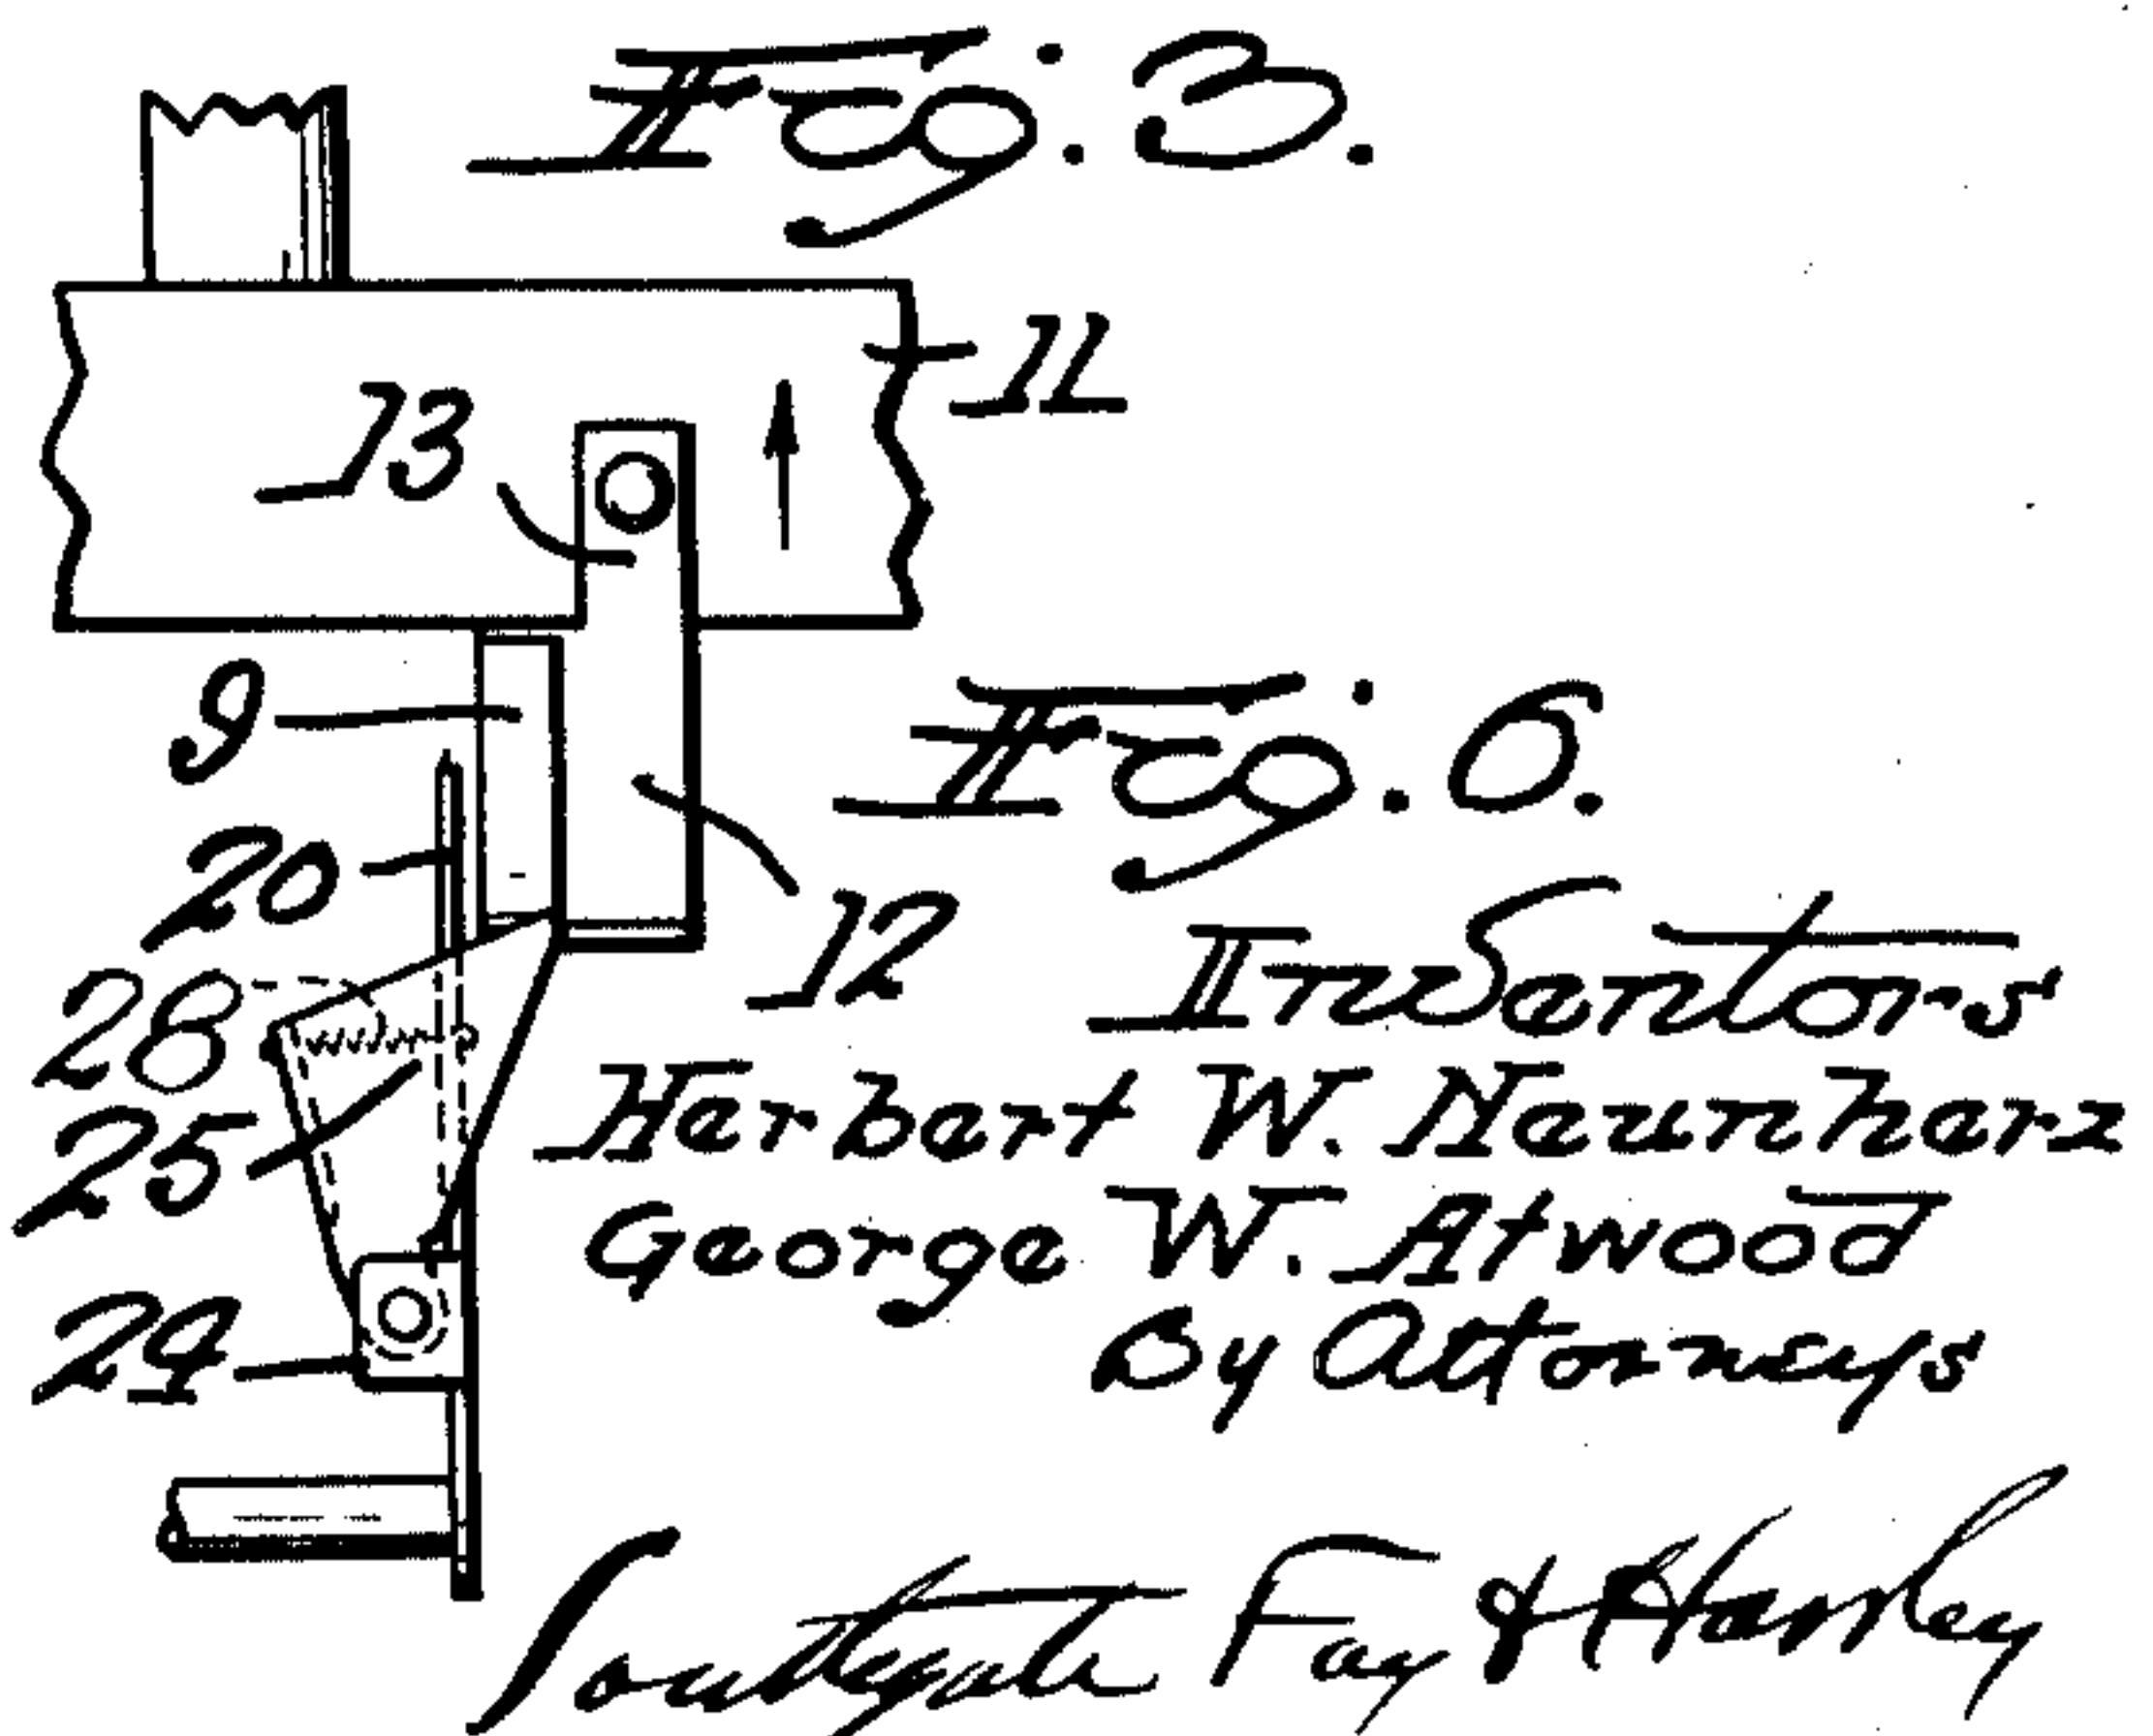 Fig. 3.
11
13
9
Fig. 6.
20
12
28
25
24
Inventors
Herbert W. Naunharz
George W. Atwood
By Attorneys
Southgate Fay & Hawley